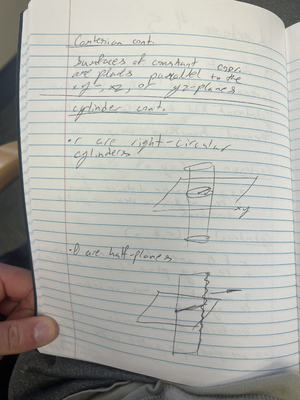 Cartesian coord.
Surfaces of constant coor.
are planes parallel to the
xy-, xz, or yz-planes
cylinder coord.
• r are right-circular
cylinders
xy
• θ are half-planes